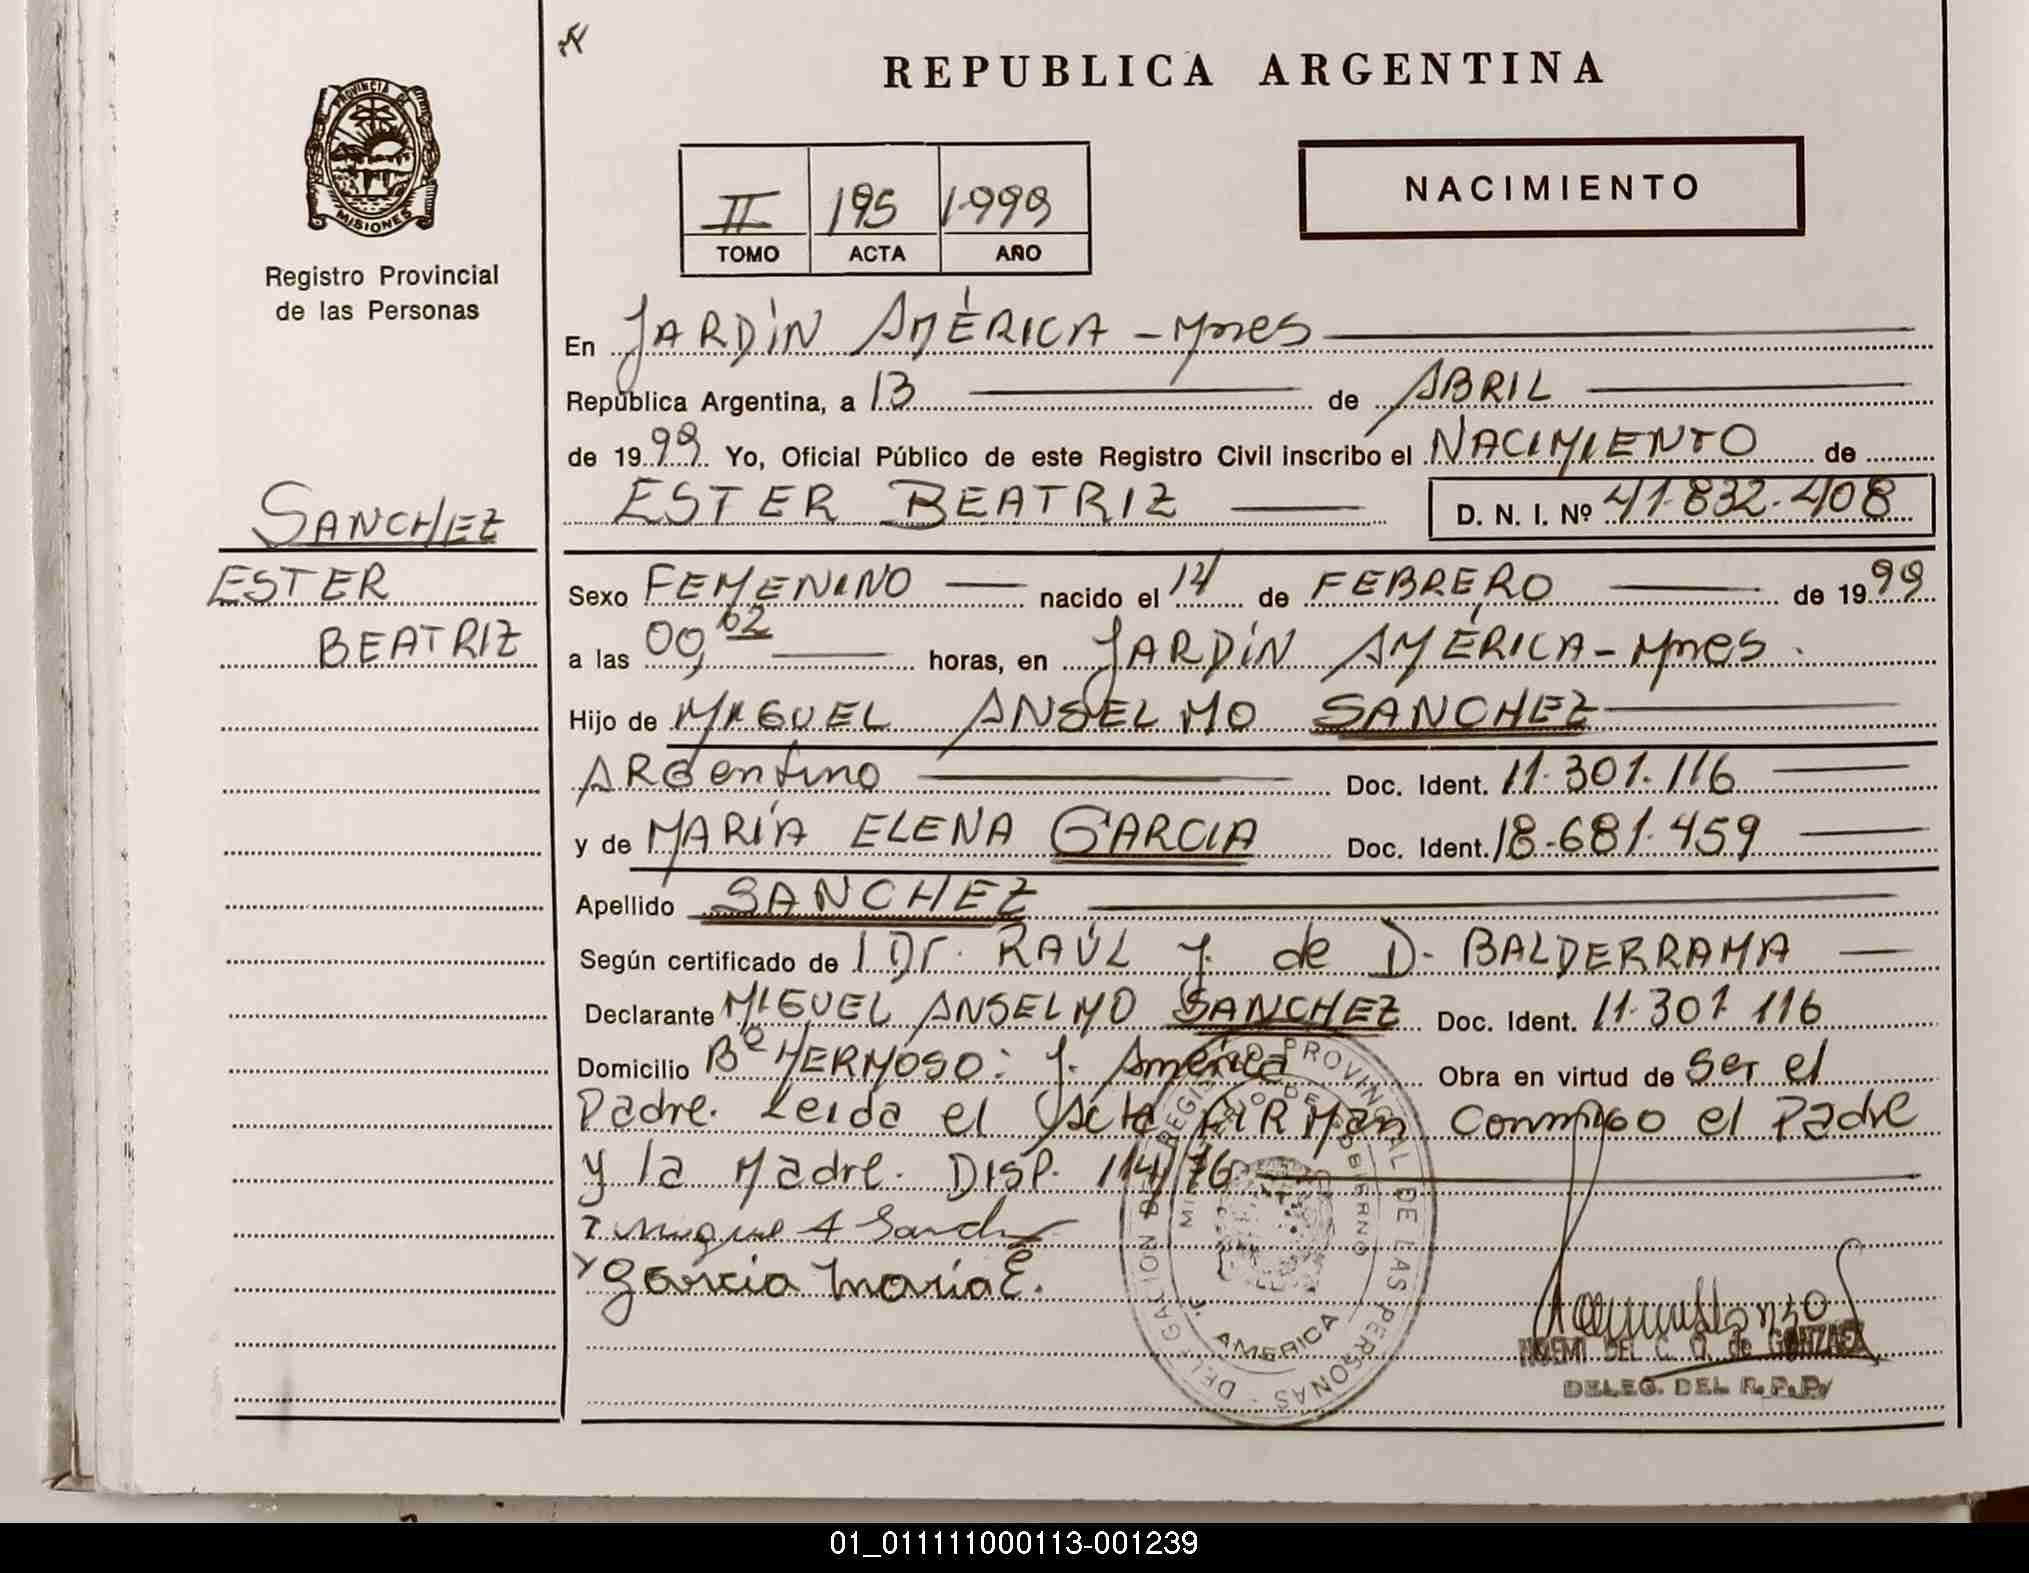 REPUBLICA ARGENTINA
PROVINCIA DE
MISIONES
Registro Provincial
de las Personas
NACIMIENTO
II 195 1.999
TOMO ACTA AÑO
En JARDÍN AMÉRICA - Mnes
República Argentina, a 13 de ABRIL
de 1999 Yo, Oficial Público de este Registro Civil inscribo el NACIMIENTO de
ESTER BEATRIZ D. N. I. Nº 41.832.408
SANCHEZ
ESTER
BEATRIZ
Sexo FEMENINO nacido el 14 de FEBRERO de 1999
a las 00,02 horas, en JARDÍN AMÉRICA - Mnes.
Hijo de MIGUEL ANSELMO SANCHEZ
ARGentino Doc. Ident. 11.301.116
y de MARÍA ELENA GARCIA Doc. Ident. 18.681.459
Apellido SANCHEZ
Según certificado de l Dr. RAÚL J. de D. BALDERRAMA
Declarante MIGUEL ANSELMO SANCHEZ Doc. Ident. 11.301.116
Domicilio Bº HERMOSO: J. América Obra en virtud de Ser el
Padre. Leida el Acta FIRMan Conmigo el Padre
y la Madre. DISP. 114/76
Miguel A Sanch
Garcia Maria E.
DELEGACION DEL REGISTRO PROVINCIAL DE LAS PERSONAS
AMERICA
NOEMI DEL C. O. de GONZALEZ
DELEG. DEL R.P.P.
01_011111000113-001239